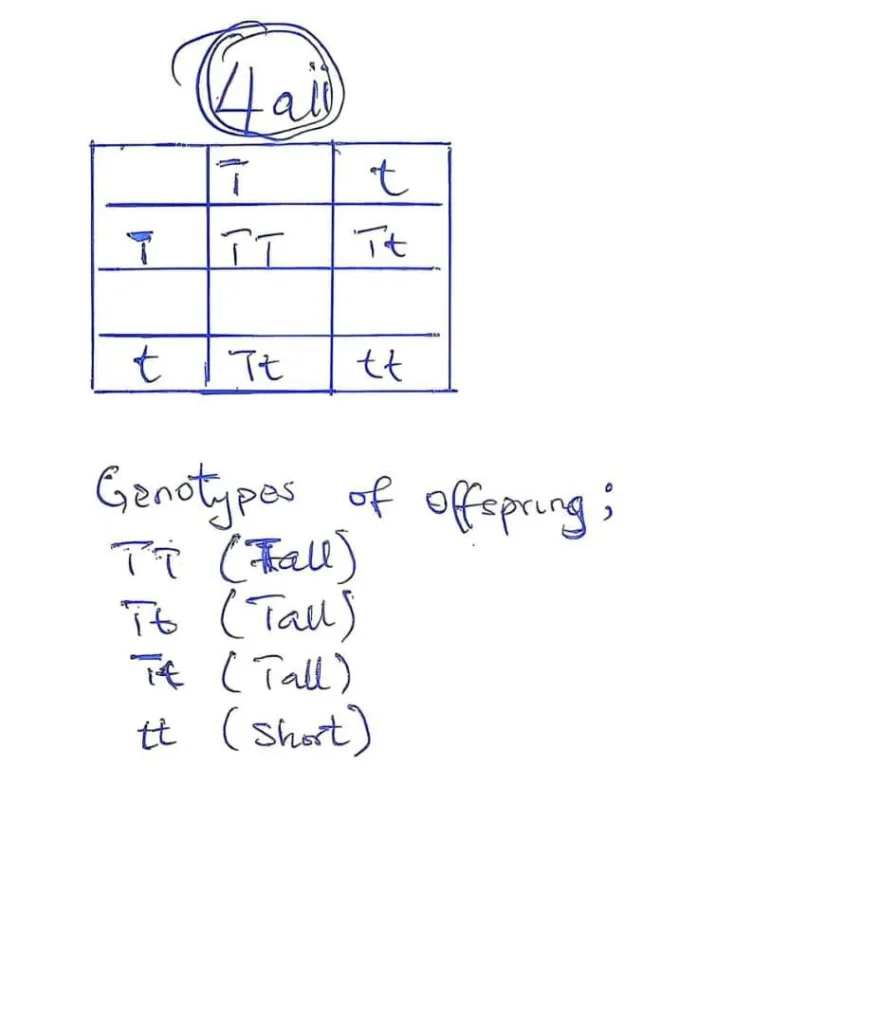 4aii
T t
T TT Tt
t Tt tt
Genotypes of offspring;
TT (Tall)
Tt (Tall)
Tt (Tall)
tt (short)